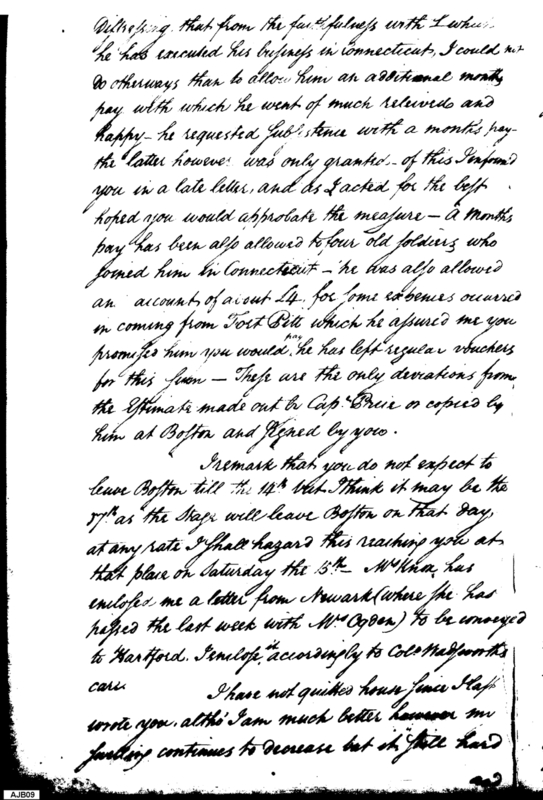 Distressing, that from the faithfulness with which
he has executed his business in Connecticut, I could not
do otherways than to allow him an additional months
pay with which he went of much releived and
happy - he requested Subsistence with a months pay -
the latter however was only granted - of this I informd
you in a late letter, and as I acted for the best
hoped you would approbate the measure - A months
pay has been also allowed to four old soldiers who
joined him in Connecticut - he was also allowed
an account of about £4. for some expences occurred
in coming from Fort Pitt which he assured me you
promised him you would pay he has left regular vouchers
for this Sum - These are the only deviations from
the Estimate made out by Capt. Price or copied by
him at Boston and Signed by you.
I remark that you do not expect to
leave Boston till the 14th Inst. I think it may be the
17th as the Stage will leave Boston on that day,
at any rate I shall hazard this reaching you at
that place on Saturday the 15th - Mrs Knox has
enclosed me a letter from Newark (where she has
passed the last week with Mrs Ogden) to be conveyed
to Hartford. I enclose it accordingly to Colo Wadsworths
care
I have not quitted house since I last
wrote you. altho' I am much better however my
swelling continues to decrease but it still hard
and
AJB09